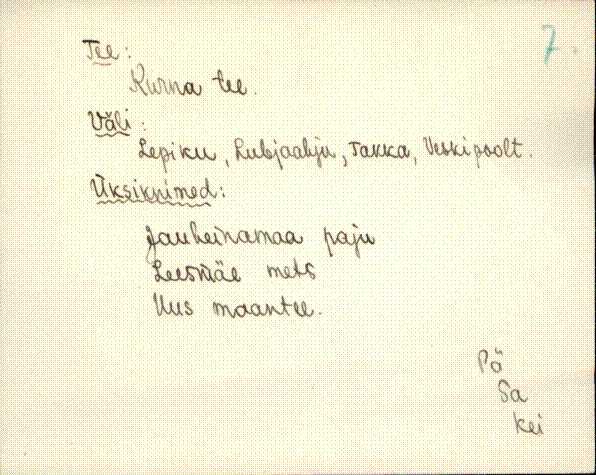 7.
Tee:
Kurna tee.
Väli:
Lepiku, Lubjaahju, Takka, Veskipoolt.
Üksiknimed:
Jauheinamaa paju
Leesmäe mets
Uus maantee.
Pö
Sa
Kei